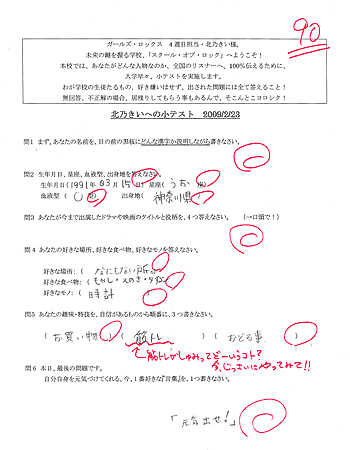 90
ガールズ・ロックス 4週目担当・北乃きい様。
未来の鍵を握る学校、「スクール・オブ・ロック」へようこそ!
本校では、あなたがどんな人物なのか、全国のリスナーへ、100%伝えるために、
入学早々、小テストを実施します。
わが学校の生徒たるもの、好き嫌いはせず、出された問題には全て答えること!
無回答、不正解の場合、居残りしてもらう事もあるんで、そこんとこヨロシク!
北乃きいへの小テスト 2009/2/23
問1 まず、あなたの名前を、目の前の黒板にどんな漢字か説明しながら書きなさい。
問2 生年月日、星座、血液型、出身地を答えなさい。
生年月日(1991年 03月15日) 星座(うお座)
血液型( O型) 出身地( 神奈川県 )
問3 あなたが今まで出演したドラマや映画のタイトルと役柄を、4つ答えなさい。 (一口頭で!)
問4 あなたの好きな場所、好きな食べ物、好きなモノを答えなさい。
好きな場所:( なにもない所
好きな食べ物:( もやし・えのき・
好きなモノ:( 時計
問5 あなたの趣味・特技を、自信があるものから順番に、3つ書きなさい。
( お買い物 ) ( 筋トレ ) ( おどる事 )
筋トレがしゅみってどーいうコト?
今、じっさいにやってみて!!
問6 本日、最後の問題です。
自分自身を元気づけてくれる、今、1番好きな『言葉』を、1つ書きなさい。
「元気出せ!」